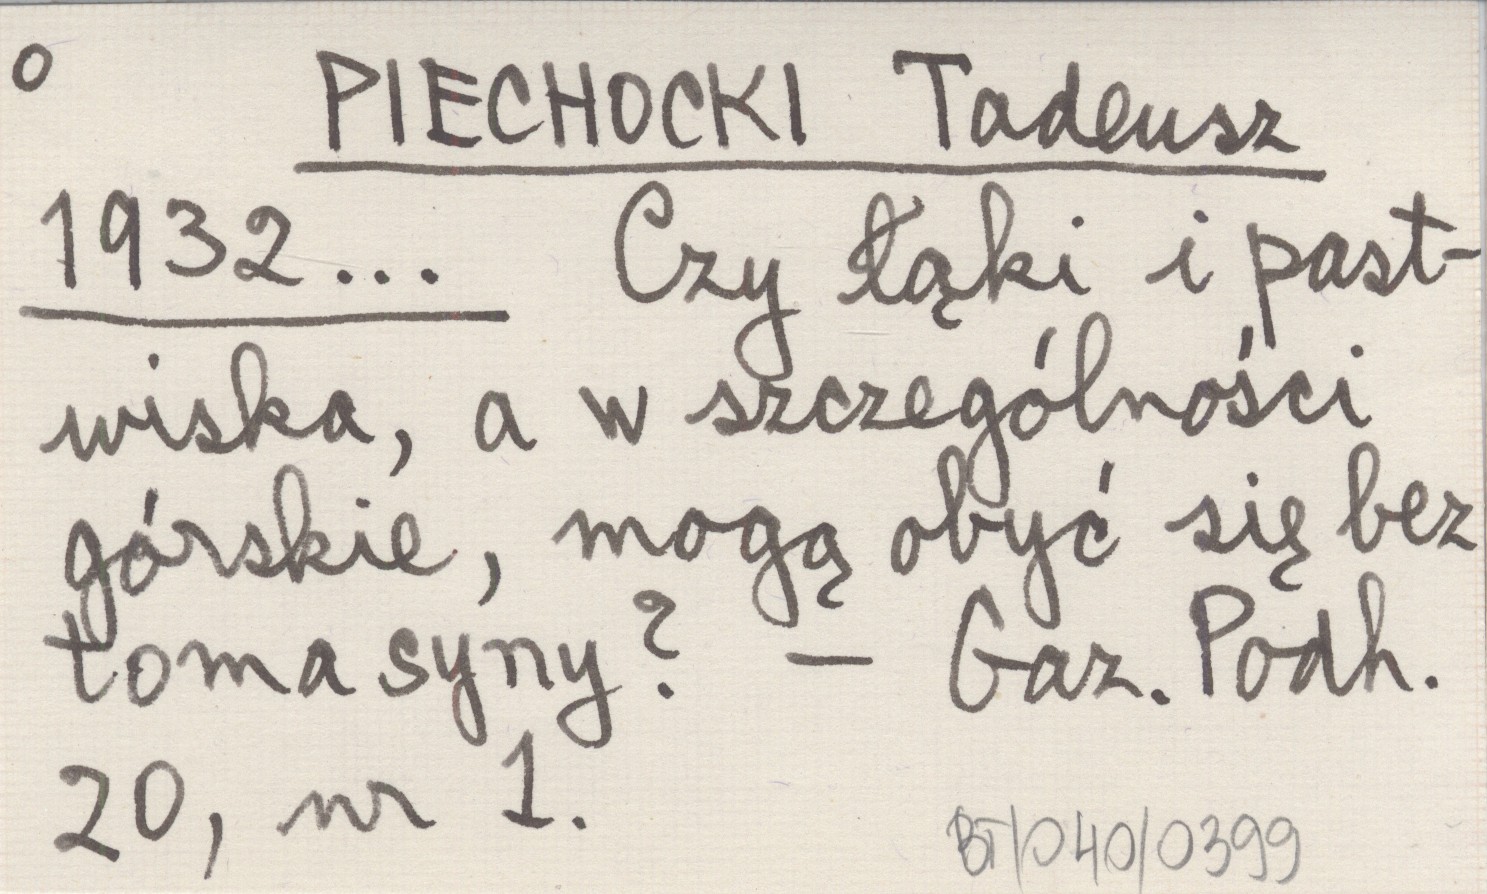 o PIECHOCKI Tadeusz
1932... Czy łąki i past-
wiska, a w szczególności
górskie, mogą obyć się bez
tomasyny? – Gaz. Podh.
20, nr 1.
BT/040/0399